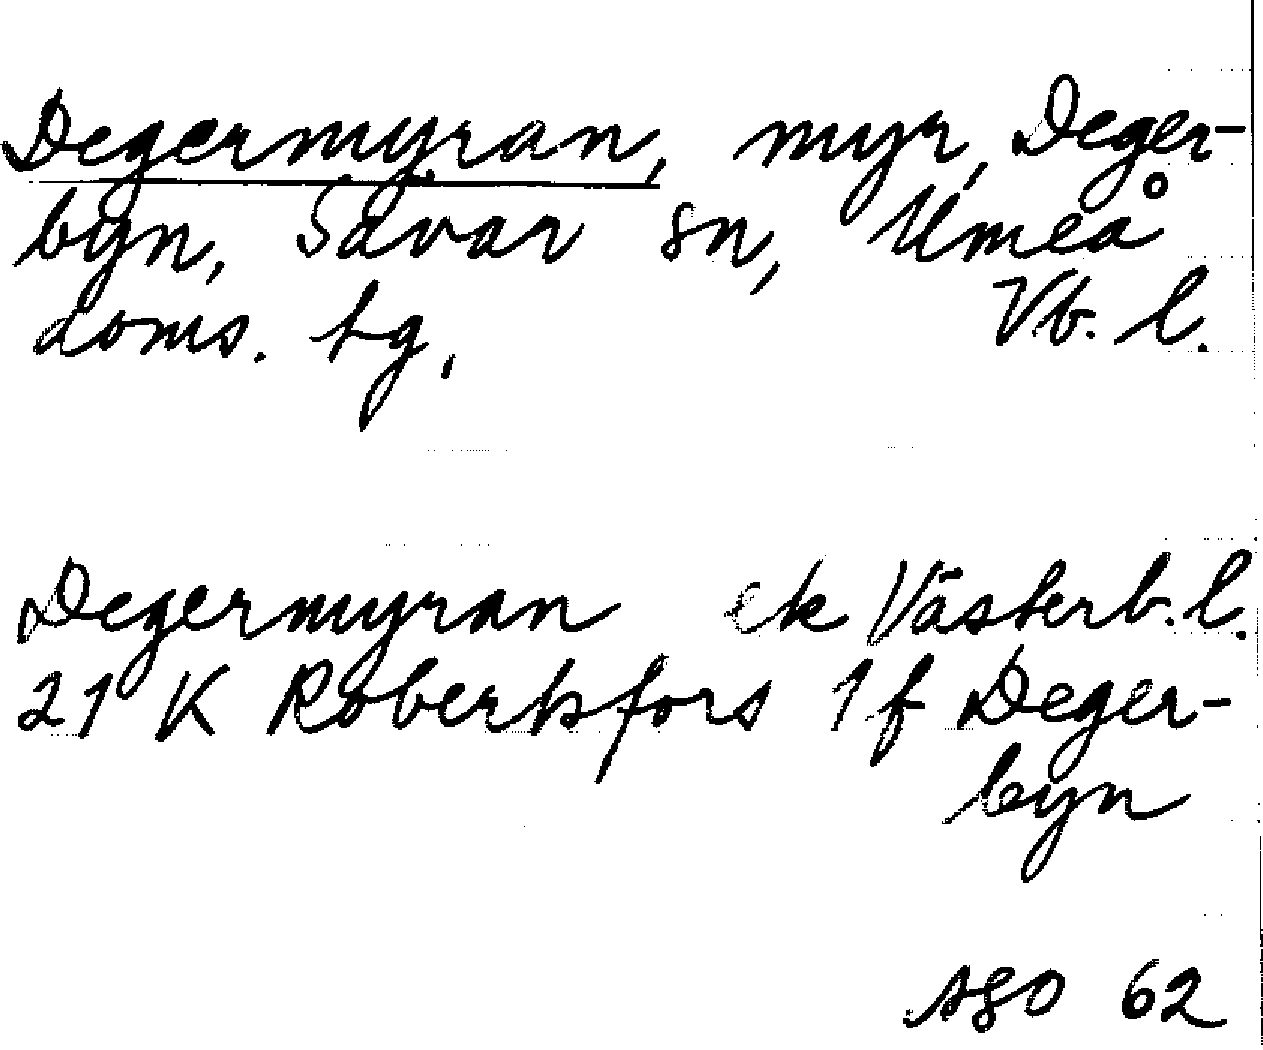 Degermyran, myr, Deger-
byn, Sävar sn, Umeå
doms. tg, Vb. l.
Degermyran ek Västerb. l.
21 K Robertsfors 1 f Deger-
byn
SGO 62